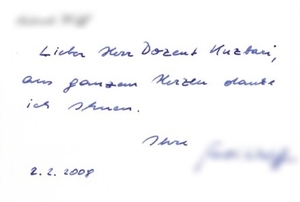 Lieber Herr Dozent Kuzbari,
aus ganzem Herzen danke
ich Ihnen.
Ihre
2.2.2009